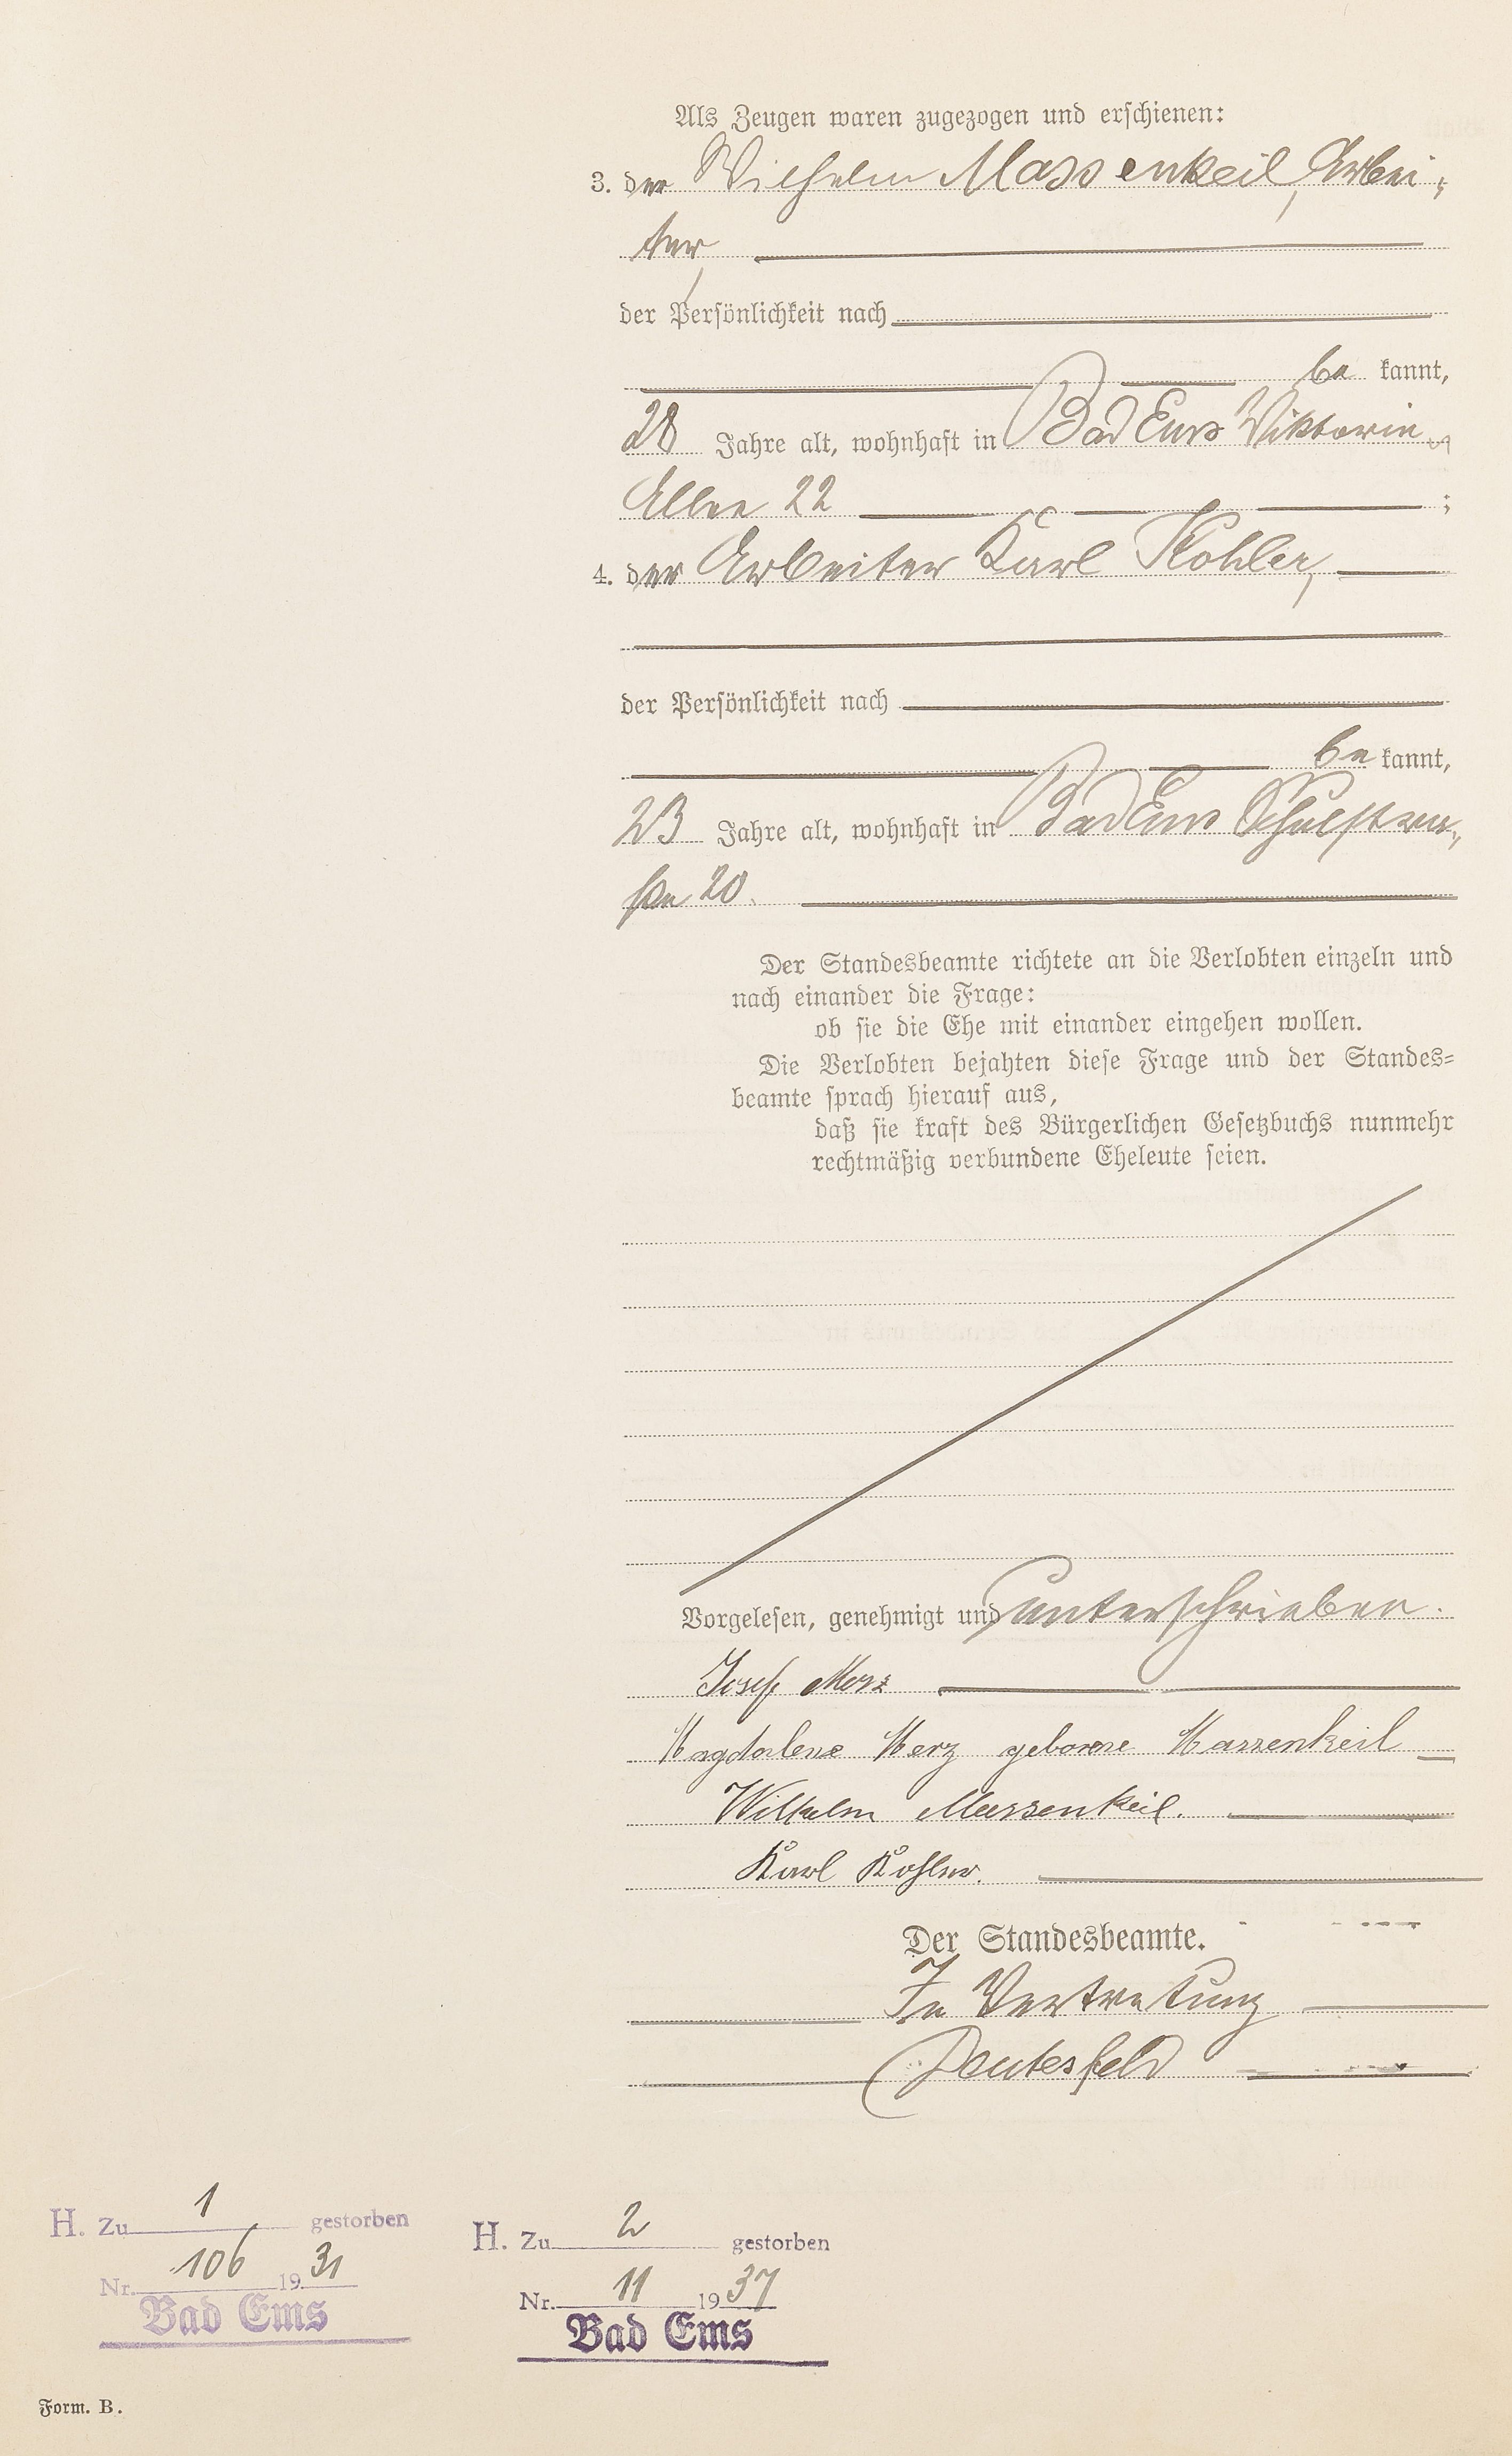 Als Zeugen waren zugezogen und erschienen:
3. der Wilhelm Massenkeil, Arbei-
ter,
der Persönlichkeit nach
be kannt,
28 Jahre alt, wohnhaft in Bad Ems Viktoria-
Allee 22 ;
4. der Arbeiter Karl Kohler,
der Persönlichkeit nach
be kannt,
23 Jahre alt, wohnhaft in Bad Ems Schulstra-
ße 20.
Der Standesbeamte richtete an die Verlobten einzeln und
nach einander die Frage:
ob sie die Ehe mit einander eingehen wollen.
Die Verlobten bejahten diese Frage und der Standes=
beamte sprach hierauf aus,
daß sie kraft des Bürgerlichen Gesetzbuchs nunmehr
rechtmäßig verbundene Eheleute seien.
Vorgelesen, genehmigt und unterschrieben.
Josef Merz
Magdalene Merz geborene Massenkeil
Wilhelm Massenkeil.
Karl Kohler.
Der Standesbeamte.
In Vertretung
Deutesfeld
H. Zu 1 gestorben
Nr. 106 1931
Bad Ems
H. Zu 2 gestorben
Nr. 11 1937
Bad Ems
Form. B.